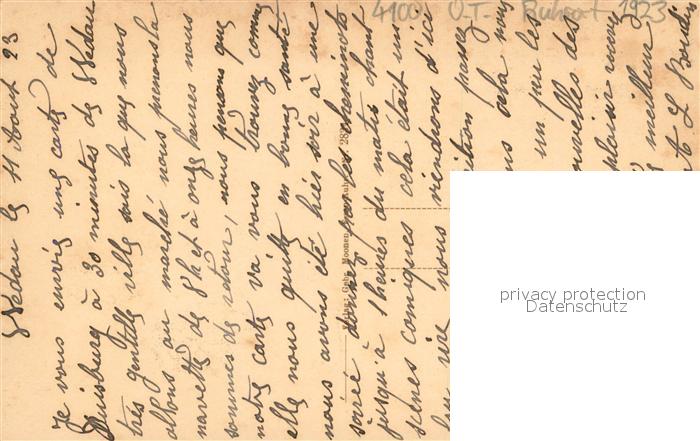 4100 O.T. Ruhrort 1923
Wedau le 11 Août 23
Je vous envoie une carte de
Duisburg à 30 minutes de Wedau
très gentille ville sais la que nous
allons au marché nous prenons la
navette de 8h et à onze heures nous
sommes de retour, nous pensons que
notre carte va vous trouvez comme
elle nous quitte en bonne santé
nous avons été hier soir à une
soirée donnez par les cheminots
jusqu'à 1 heures du matin chant
scènes comiques cela était un
vie nous viendrons d'ici
ition passez
ns cela nous
un peu les
nouvelles des
plaisir
meilleur
L
Verlag: Gebr. Moonen
privacy protection
Datenschutz